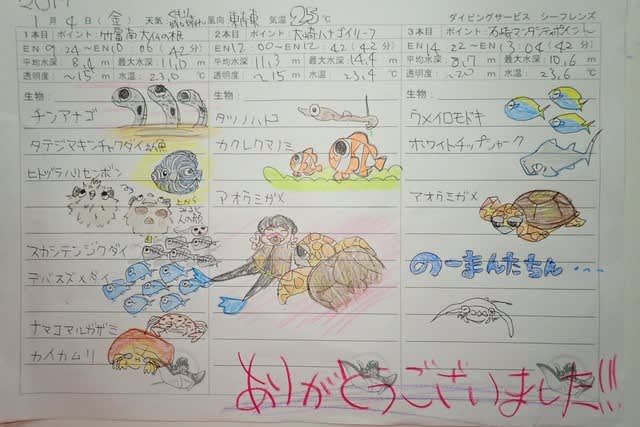 1月4日(金) 天気 くもり時々晴れ 風向 東南東 気温 25℃
ダイビングサービス シーフレンズ
1本目 ポイント: 竹富南 大仏の根
EN 9:24〜10:06 (42分)
平均水深: 8.4m 最大水深: 11.0m
透明度: 〜15m 水温: 23.0℃
生物:
チンアナゴ
タテジマキンチャクダイ幼魚
ヒトヅラハリセンボン
上からみると人の顔
スカシテンジクダイ
デバスズメダイ
ナマコマルガザミ
カイカムリ
2本目 ポイント: 大崎ハナゴイリーフ
EN 12:00〜12:42 (42分)
平均水深: 11.3m 最大水深: 14.4m
透明度: 〜15m 水温: 23.4℃
生物:
タツノハトコ
カクレクマノミ
アオウミガメ
3本目 ポイント: 石崎マンタシティポイント
EN 14:22〜15:04 (42分)
平均水深: 8.7m 最大水深: 10.6m
透明度: 〜20m 水温: 23.6℃
生物:
ウメイロモドキ
ホワイトチップシャーク
アオウミガメ
のーまんたちん・・・
ありがとうございました!!!